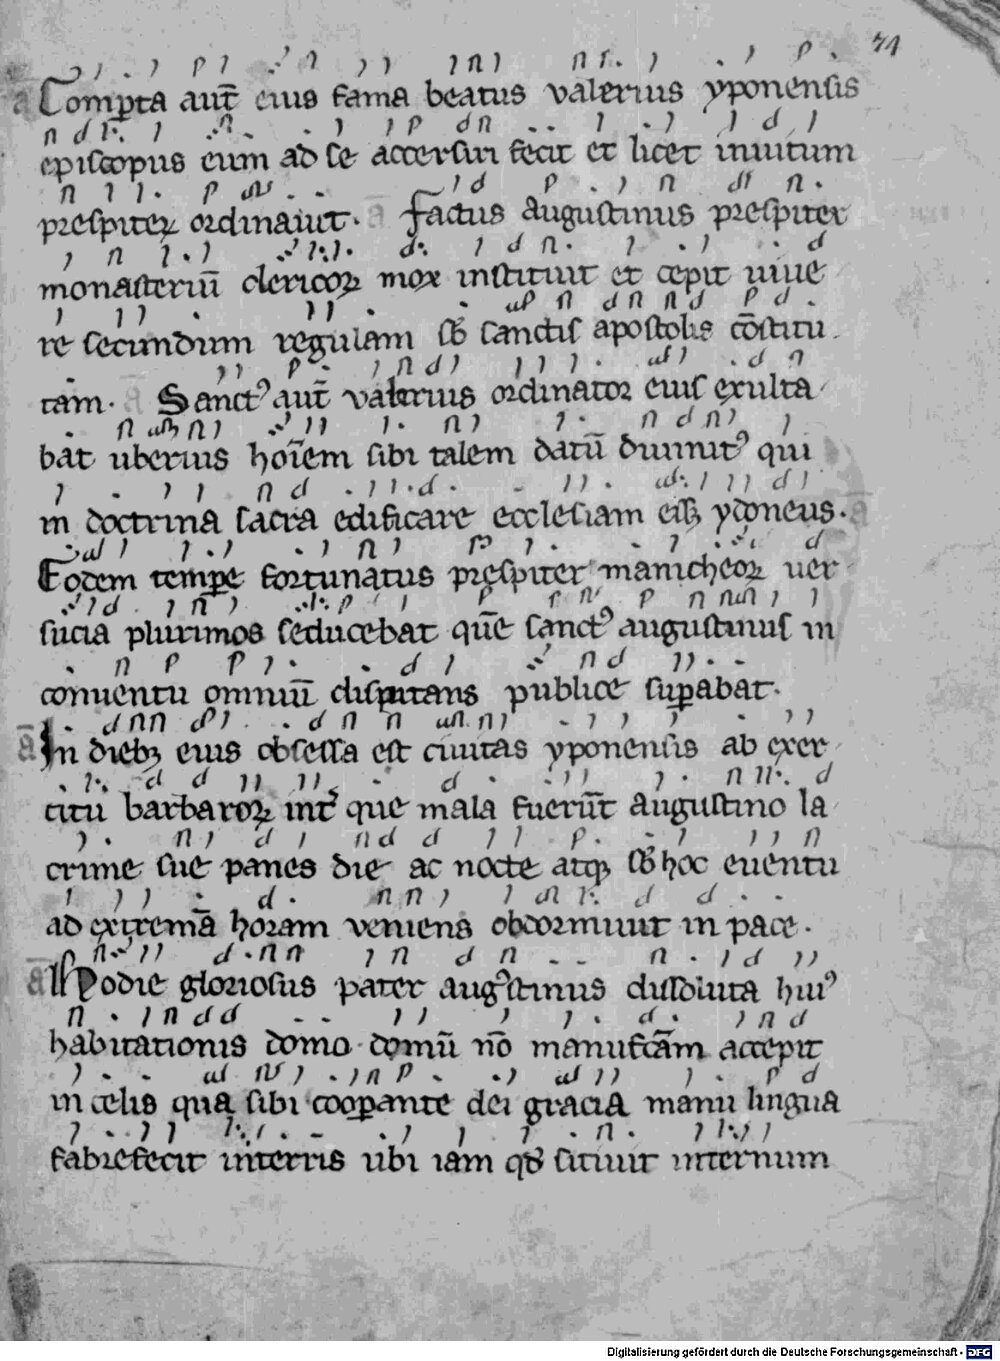 71
a Comp̱ta aut̄ eius fama beatus valerius yponensis
episcopus eum ad se accersiri fecit et licet inuitum
prespiteꝝ ordinauit. a Factus augustinus prespiter
monasteriū clericoꝝ mox instituit et cepit uiue
re secundum regulam sb̄ sanctis apostolis cōstitu
tam. a Sanctꝰ aut̄ valerius ordinator eius exulta
bat uberius hoīem sibi talem datū diuinitꝰ qui
in doctrina sacra edificare ecclesiam eiꝰ ydoneus. a
Eodem temꝑe fortunatus prespiter manicheoꝝ uer
sucia plurimos seducebat quē sanctꝰ augustinus in
conuentu omniū disputans publice suꝑabat.
a In diebꝫ eius obsessa est ciuitas yponensis ab exer
citu barbaroꝝ int̄ que mala fuerūt augustino la
crime sue panes die ac nocte atqꝫ sb̄ hoc euentu
ad extremā horam veniens obdormiuit in pace.
a Hodie gloriosus pater augꝰstinus dissoluta huiꝰ
habitationis domo domū nō manufc̄am accepit
in celis qua sibi cooꝑante dei gracia manu lingua
fabrefecit in terris ubi iam qd̄ sitiuit internum
Digitalisierung gefördert durch die Deutsche Forschungsgemeinschaft - DFG